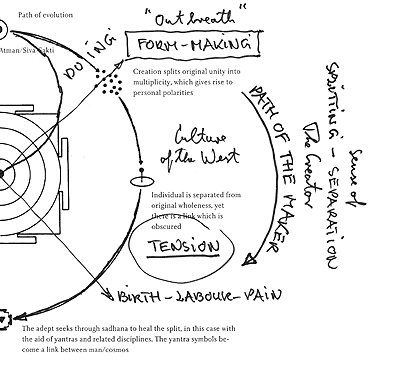 "Outbreath"
Path of evolution
FORM-MAKING
DOING
Atman/Siva Sakti
Creation splits original unity into
multiplicity, which gives rise to
personal polarities
PATH OF THE MAKER
Sense of
SPLITTING - SEPARATION
The Creator
Culture
of the West
Individual is separated from
original wholeness, yet
there is a link which is
obscured
TENSION
BIRTH-LABOUR-PAIN
The adept seeks through sadhana to heal the split, in this case with
the aid of yantras and related disciplines. The yantra symbols be-
come a link between man/cosmos